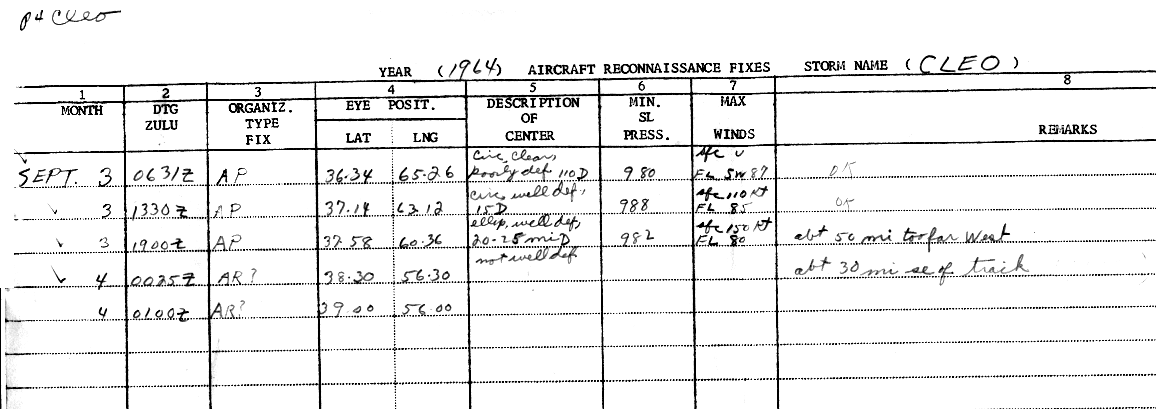 p4 Cleo
YEAR (1964) AIRCRAFT RECONNAISSANCE FIXES STORM NAME (CLEO)
1 2 3 4 5 6 7 8
MONTH DTG ZULU ORGANIZ. TYPE FIX EYE POSIT. LAT LNG DESCRIPTION OF CENTER MIN. SL PRESS. MAX WINDS REMARKS
SEPT. 3 0631Z AP 36.34 65.26 circ, clear, poorly def 110D 980 sfc U FL SW 87 OK
3 1330Z AP 37.14 63.12 circ, well def, 15D 988 sfc 110 Kt FL 85 OK
3 1900Z AP 37.58 60.36 ellip, well def, 20-25 mi D 982 sfc 150 Kt FL 80 abt 50 mi too far West
4 0025Z AR? 38.30 56.30 not well def abt 30 mi se of track
4 0100Z AR? 39.00 56.00